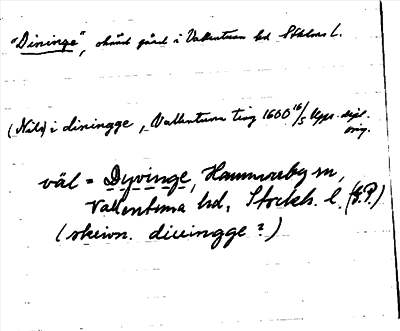 "Dininge", okänd gård i Vallentuna hd Sthlms L.
(Nils) i diningge, Vallentuna ting 1600 16/5 Upps.
orig.
väl = Dyvinge, Hammarby sn,
Vallentuna hd, Stockh. l. (G.P.)
(skrivn. diuingge?)